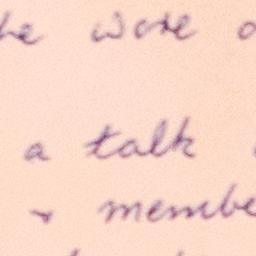 he wore
a talk
r membe